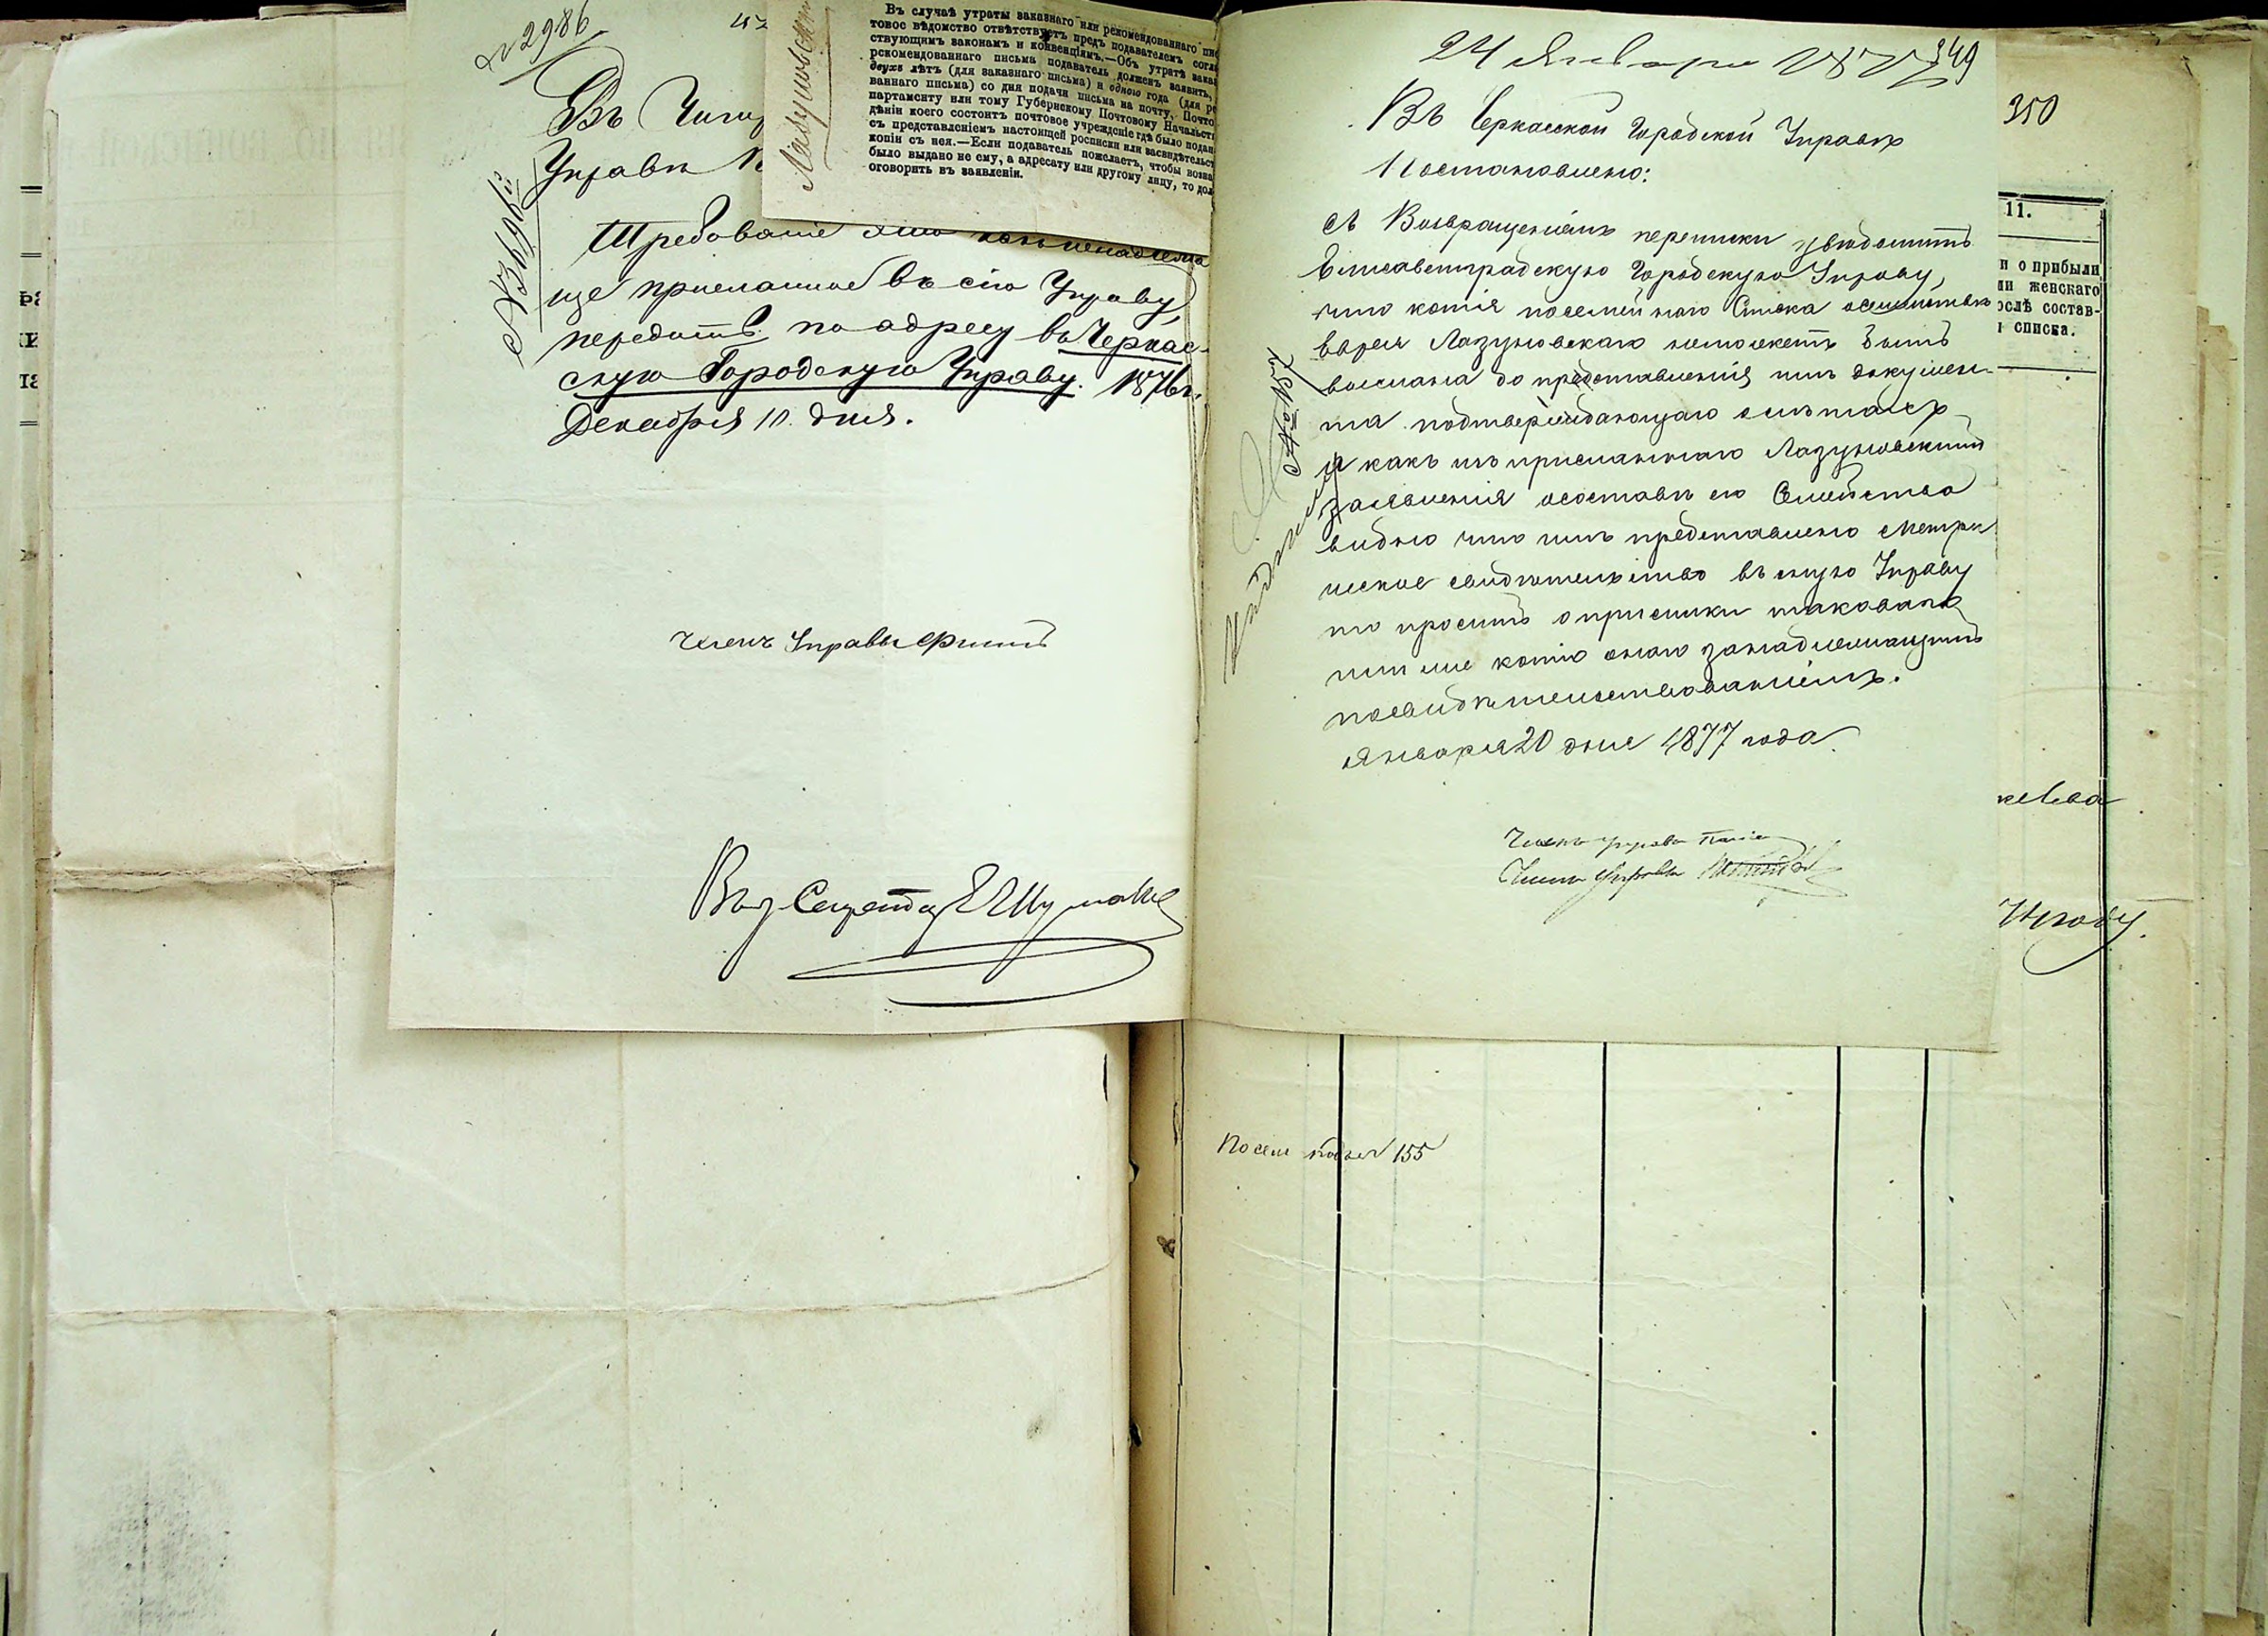 № 2986
Въ Чиги
Управѣ
№ 3696й
Требованіе это какъ ненадлежа
ще присланное въ сію Управу,
передать по адресу въ Черкас-
скую Городскую Управу. 1876 г.
Декабря 10 дня.
Членъ Управы
Секретар
Въ случаѣ утраты заказнаго или рекомендованнаго пис
товое вѣдомство отвѣтствуетъ предъ подавателемъ согла
ствующимъ законамъ и конвенціямъ.—Объ утратѣ заказ
рекомендованнаго письма подаватель долженъ заявить,
двухъ лѣтъ (для заказнаго письма) и одного года (для ре
ваннаго письма) со дня подачи письма на почту, Почто
партаменту или тому Губернскому Почтовому Начальст
дѣніи коего состоитъ почтовое учрежденіе гдѣ было подан
съ представленіемъ настоящей росписки или засвидѣтельст
копіи съ нея.—Если подаватель пожелаетъ, чтобы возна
было выдано не ему, а адресату или другому лицу, то дол
оговорить въ заявленіи.
349
24 Января 1877
Въ Черкасской Городской Управѣ
Постановлено:
Съ Возвращеніемъ переписки увѣдомить
Елисаветградскую Городскую Управу,
что копія посемейного Списка о семействѣ
еврея Лазуновскаго неможетъ быть
выслана до представленія имъ докумен-
та подтверждающаго о лѣтахъ
и какъ изъ присланнаго Лазуновскимъ
заявленія осоставѣ его Семейства
видно что имъ представлено Метри
ческое свидѣтельство въ оную Управу
то просить о присылки таковаго
или же копію онаго занадлежащимъ
посвидѣтельствованіемъ.
Января 20 дня 1877 года.
Членъ Управы
Членъ Управы
350
11.
и о прибыли
ии женскаго
ослѣ состав-
и списка.
155